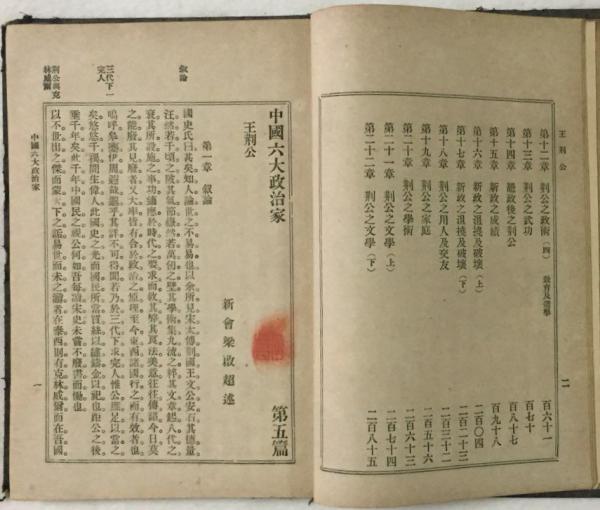 王荆公
二
第十二章 荆公之政術(四) 教育及選舉 百六十一
第十三章 荆公之武功 百七十
第十四章 罷政後之荆公 百八十七
第十五章 新政之成績 百九十八
第十六章 新政之阻撓及破壞(上) 二百〇四
第十七章 新政之阻撓及破壞(下) 二百二十三
第十八章 荆公之用人及交友 二百三十二
第十九章 荆公之家庭 二百五十六
第二十章 荆公之學術 二百六十三
第二十一章 荆公之文學(上) 二百七十四
第二十二章 荆公之文學(下) 二百八十五
中國六大政治家 第五篇
王荆公
新會梁啟超述
第一章 叙論
叙論
國史氏曰甚矣知人論世之不易易也以余所見宋太傅荆國王文公安石其德量
汪然若千頃之陂其氣節嶽然若萬仞之壁其學術集九流之粹其文章起八代之
衰其所設施之事功適應於時代之要求而救其弊其良法美意往往傳諸今日莫
之能廢其見廢者又大率皆有合於政治之原理至今東西諸國行之而有效者也
三代下一
完人
嗚呼皋夔伊周邈哉邈乎其詳不可得聞若乃於三代下求完人惟公庶足以當之
矣悠悠千禩間生偉人此國史之光而國民所當買絲以繡鑄金以祀也距公之後
垂千年矣此千年中國民之視公何如吾每讀宋史未嘗不廢書而慟也
荆公與克
林威爾
以不世出之傑而蒙天下之詬易世而未之湔者在泰西則有克林威爾而在吾國
中國六大政治家
一